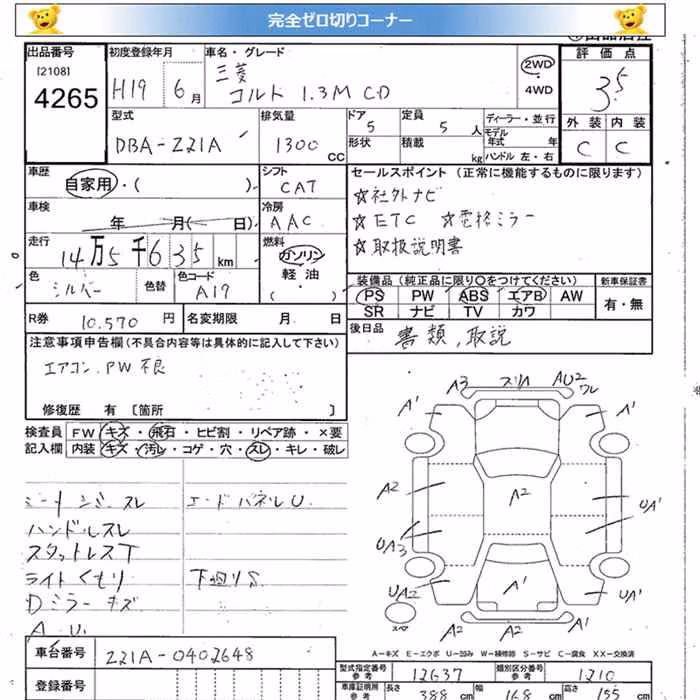 完全ゼロ切りコーナー
出品番号 初度登録年月 車名・グレード 評価点
[2108]
4265
H19 6月
三菱
コルト 1.3M CD
2WD
・
4WD
3.5
型式 排気量 ドア 定員 ディーラー・並行
DBA-Z21A 1300 CC 5 5人
モデル年式 年
形状 積載 kg ハンドル 左・右
外装 内装
C C
車歴 シフト セールスポイント (正常に機能するものに限ります)
自家用・( ) CAT
☆社外ナビ
☆ETC ☆電格ミラー
☆取扱説明書
車検 冷房
年 月( 日) AAC
走行 燃料
14万5千635km ガソリン
軽油
( )
色 色替 色コード
シルバー A19
装備品 (純正品に限り○をつけてください) 新車保証書
PS PW ABS エアB AW 有・無
SR ナビ TV カワ
R券 10.570円 名変期限 月 日
後日品 書類,取説
注意事項申告欄(不具合内容等は具体的に記入して下さい)
エアコン.PW不良
修復歴 有 [箇所 ]
検査員 FW キズ・飛石・ヒビ割・リペア跡・×要
記入欄 内装 キズ・汚レ・コゲ・穴・スレ・キレ・破レ
シートシミ.スレ エードパネルU.
ハンドルスレ
スタットレスT
ライトくもり 下廻りS
Dミラーキズ
A.U.
A3 スリA AU2
ワレ
A' A'
A2 A2 UA'
UA3
UA2 A' UA'
スペア A2 A2
A-キズ E-エクボ U-凹み W-補修跡 S-サビ C-腐食 XX-交換済
車台番号 Z21A-0402648
登録番号
型式指定番号 12637 類別区分番号 1210
車庫証明用参考 長さ 388cm 幅 168cm 高さ 155cm